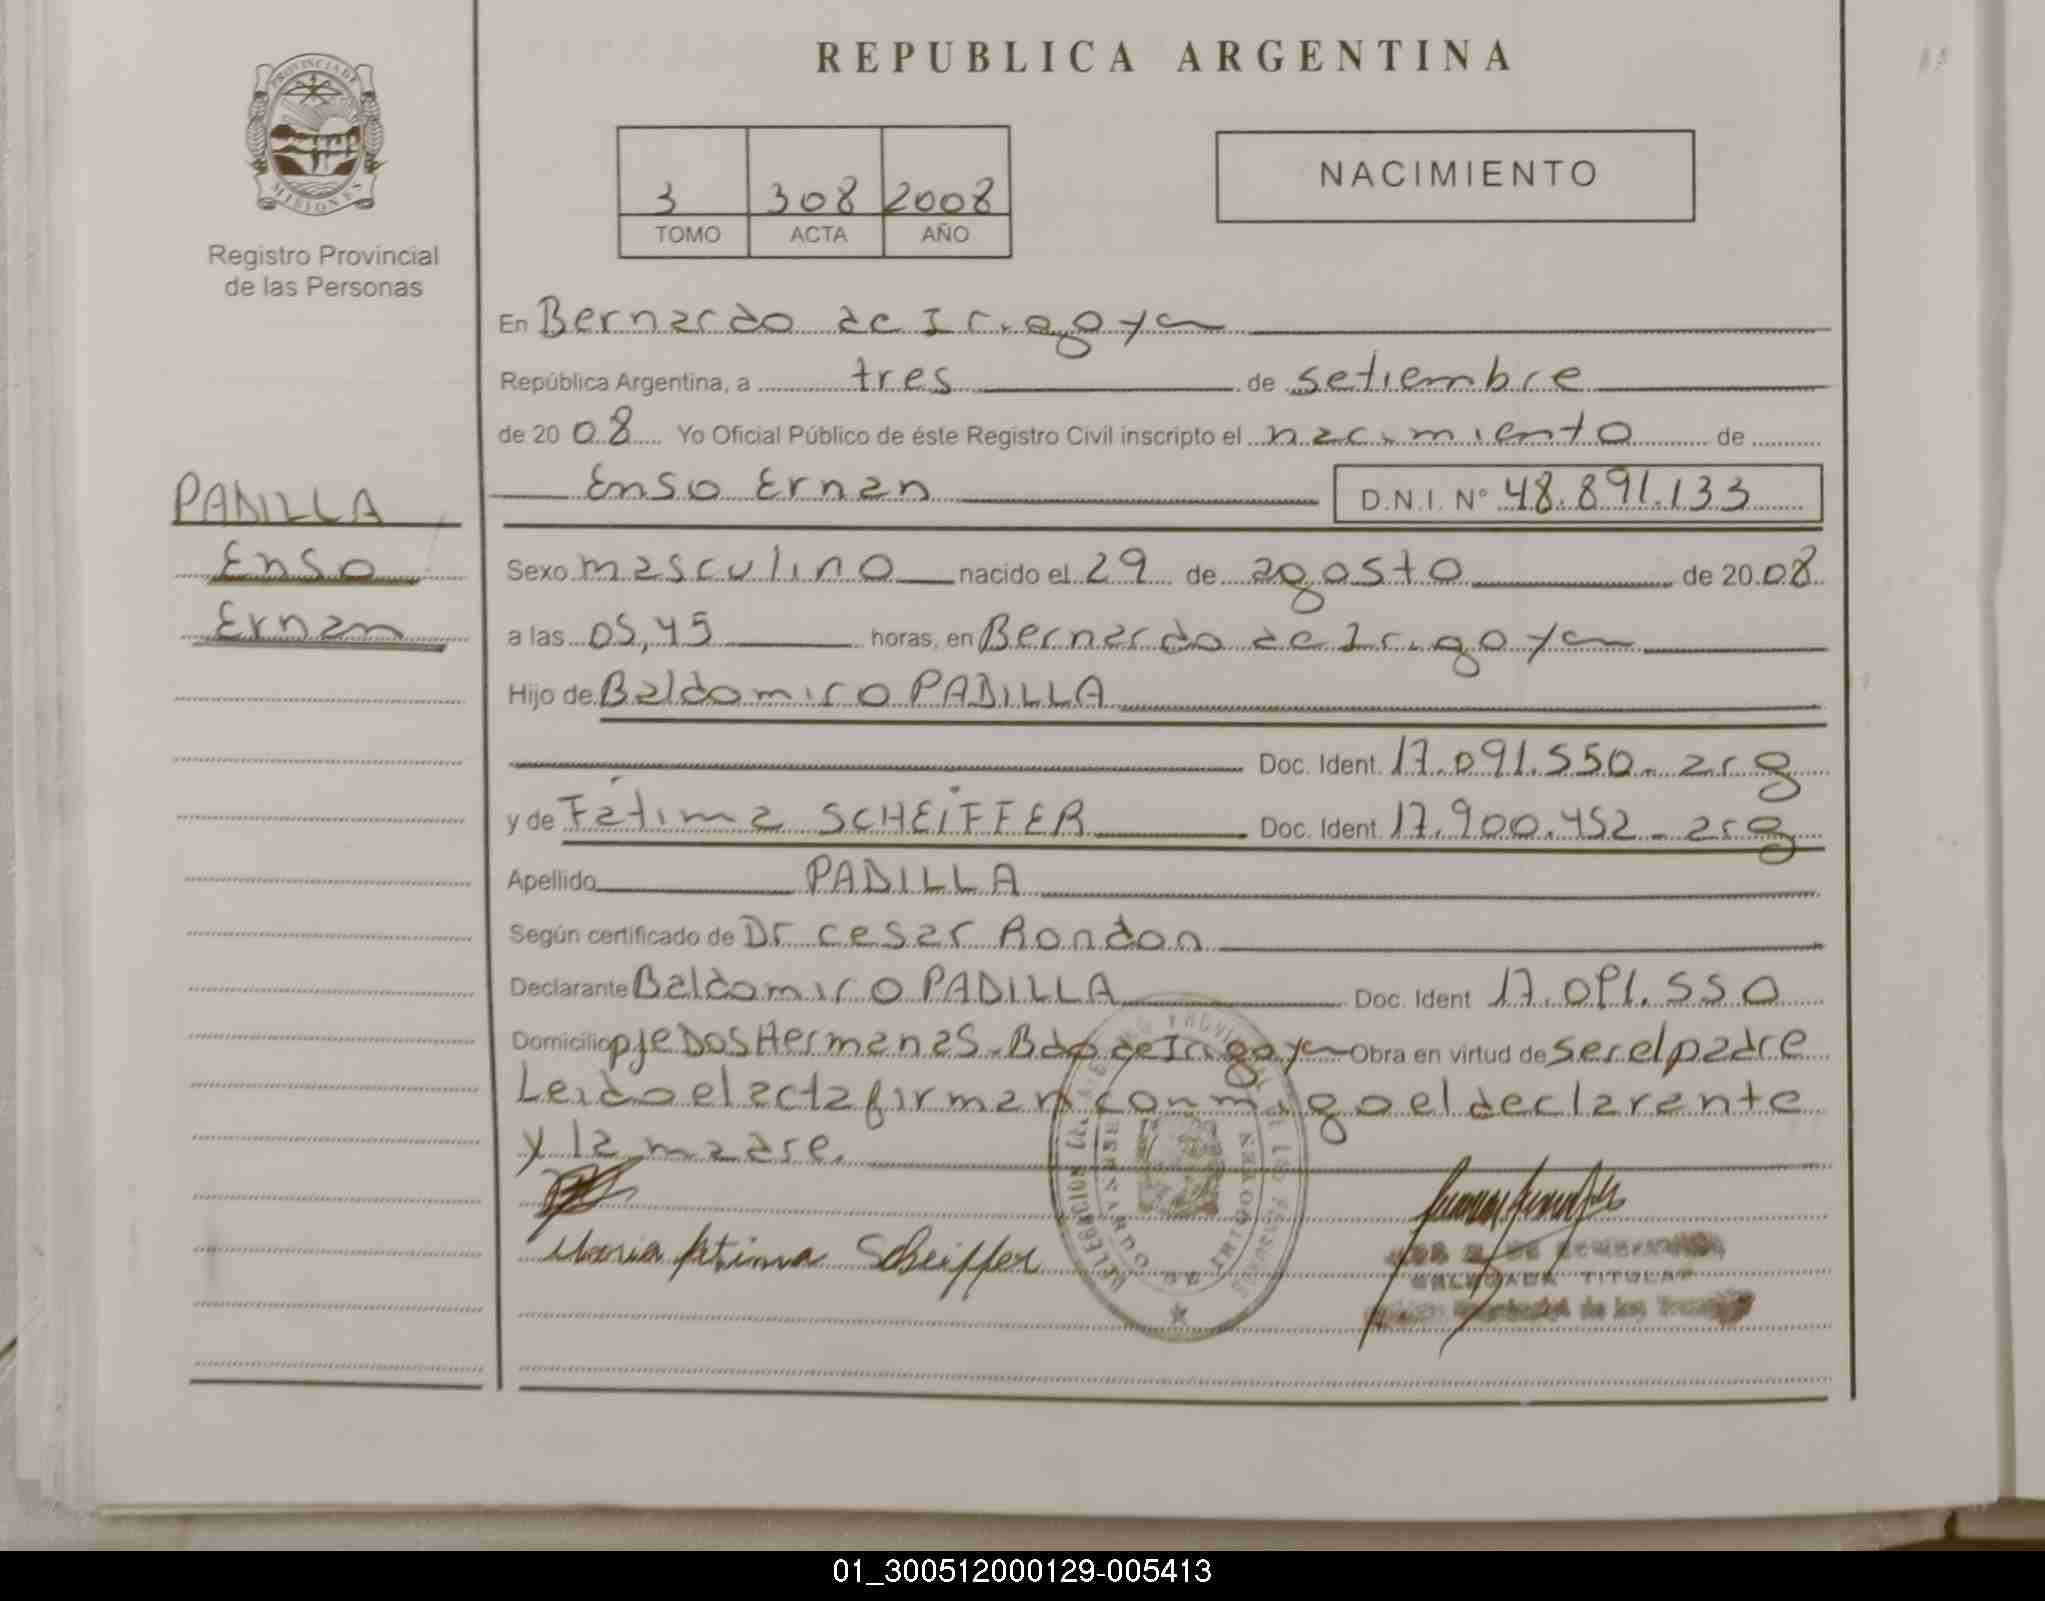 REPUBLICA ARGENTINA
PROVINCIA DE
MISIONES
Registro Provincial
de las Personas
3 308 2008
TOMO ACTA AÑO
NACIMIENTO
En Bernardo de Irigoyen
República Argentina, a tres de setiembre
de 2008 Yo Oficial Público de éste Registro Civil inscripto el nacimiento de
Enso Ernan D.N.I. N° 48.891.133
PADILLA
Enso
Ernan
Sexo masculino nacido el 29 de agosto de 2008
a las 05,45 horas, en Bernardo de Irigoyen
Hijo de Baldomiro PADILLA
Doc. Ident. 17.091.550- arg
y de Fátima SCHEiFFER Doc. Ident. 17.900.452- arg
Apellido PADILLA
Según certificado de Dr cesar Rondon
Declarante Baldomiro PADILLA Doc. Ident 17.091.550
Domicilio pje Dos Hermanas-Bdo de Irigoyen Obra en virtud de ser el padre
Leido el acta firman conmigo el declarante
y la madre.
Maria fatima Scheiffer
DELEGADA TITULAR
de las
01_300512000129-005413